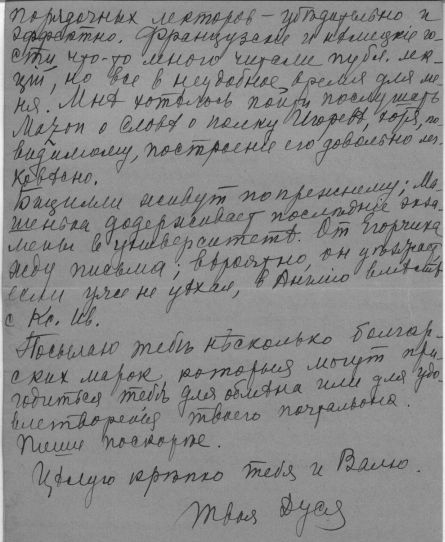 порядочных лекторов – убѣдительно и
эффектно. Французскіе и нѣмецкіе го-
сти что-то много читали публ. лек-
цій, но все в неудобное время для ме-
ня. Мнѣ хотѣлось пойти послушать
Мазон о Словѣ о полку Игоревѣ, хотя, по-
видимому, построеніе его довольно лег-
ковѣсно.
живут попрежнему; Ма-
шенька додерживает послѣдніе экза-
мены в университетѣ. От Егорчика
жду письма; вѣроятно, он уѣзжает
если уже не уѣхал, в Англію вмѣстѣ
с Кс. Ив.
Посылаю тебѣ нѣсколько болгар-
ских марок, которыя могут при-
годиться тебѣ для обмѣна или для удо-
влетворенія твоего почтальона.
Пиши поскорѣе.
Цѣлую крѣпко тебя и Валю.
Твоя Дуся